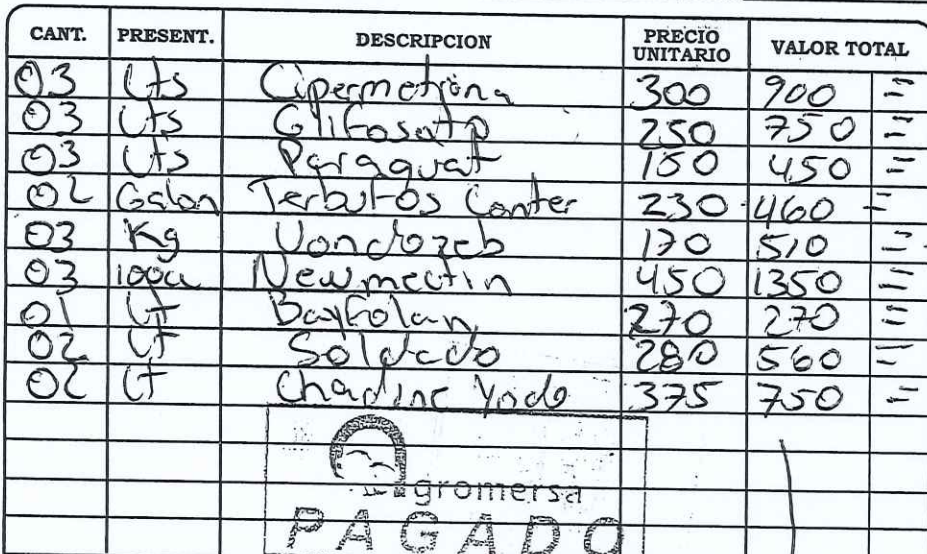 CANT. PRESENT. DESCRIPCION PRECIO UNITARIO VALOR TOTAL
03 Lts Cipermetrina 300 900 =
03 Lts Glifosato 250 750 =
03 Lts Paraquat 150 450 =
02 Galon Terbufos Conter 230 460 =
03 Kg Vondozeb 170 510 =
03 100cc Newmectin 450 1350 =
01 Lt Bayfolan 270 270 =
02 Lt Soldado 280 560 =
02 Lt Yodo 375 750 =
Agromersa
PAGADO